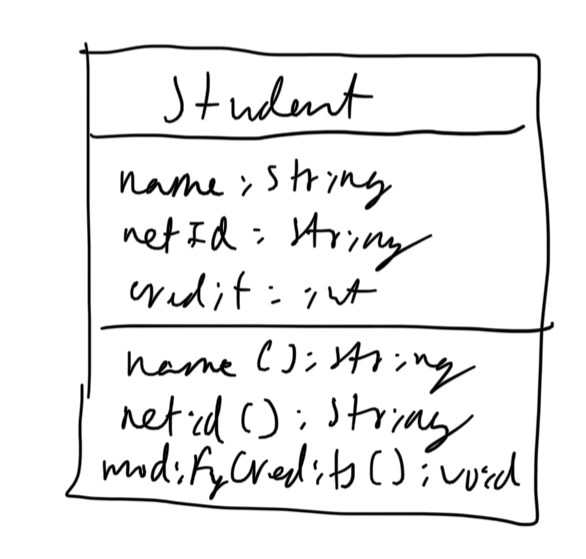 Student
name: string
netId: string
credit: int
name(): string
netid(): string
modifyCredits(): void